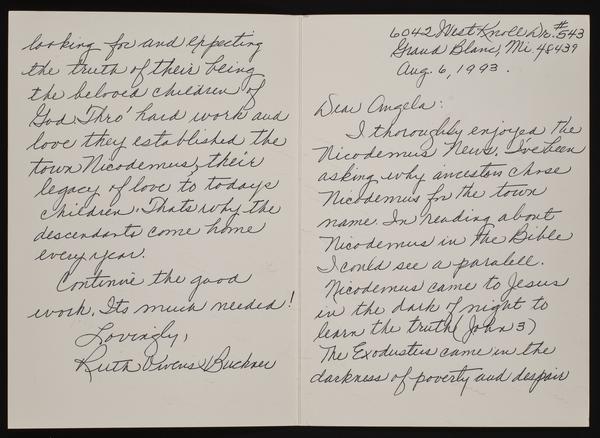 6042 West Knoll Dr. #543
Grand Blanc, Mi. 48439
Aug. 6, 1993.
Dear Angela:
I thoroughly enjoyed the
Nicodemus News. I've been
asking why ancestors chose
Nicodemus for the town
name. In reading about
Nicodemus in the Bible
I could see a paralell.
Nicodemus came to Jesus
in the dark of night to
learn the truth (John 3)
The Exodusters came in the
darkness of poverty and despair
looking for and expecting
the truth of their being
the beloved children of
God. Thro' hard work and
love they established the
town Nicodemus, their
legacy of love to todays
children. Thats why the
descendants come home
every year.
Continue the good
work. Its much needed!
Lovingly,
Ruth Owens Buckner